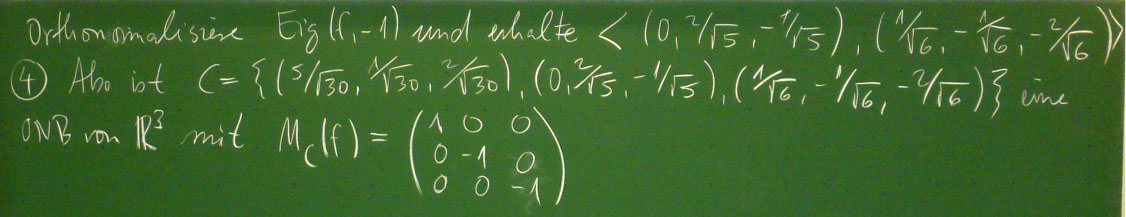 Orthonormalisiere Eig(f,-1) und erhalte < (0, 2/√5, -1/√5), (1/√6, -1/√6, -2/√6)>
④ Also ist C = {(5/√30, 1/√30, 2/√30), (0, 2/√5, -1/√5), (1/√6, -1/√6, -2/√6)} eine
ONB von ℝ³ mit M_C(f) = (1 0 0
0 -1 0
0 0 -1)